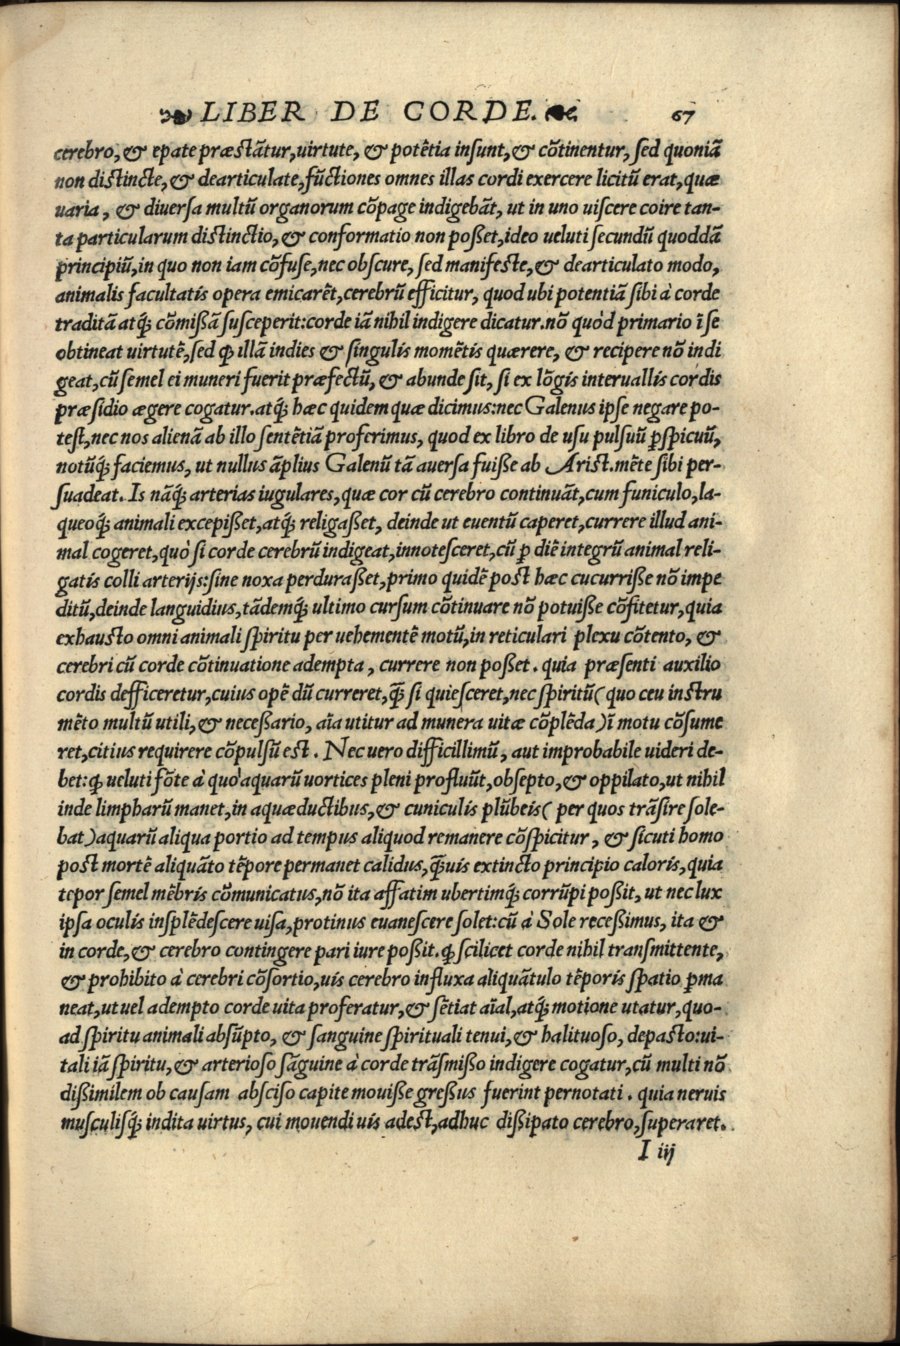 LIBER DE CORDE. 67
cerebro, & epate præstãtur, uirtute, & potẽtia insunt, & cõtinentur, sed quoniã
non distincte, & dearticulate, fũctiones omnes illas cordi exercere licitũ erat, quæ
uaria, & diuersa multũ organorum cõpage indigebãt, ut in uno uiscere coire tan-
ta particularum distinctio, & conformatio non poßet, ideo ueluti secundũ quoddã
principiũ, in quo non iam cõfuse, nec obscure, sed manifeste, & dearticulato modo,
animalis facultatis opera emicarẽt, cerebrũ efficitur, quod ubi potentiã sibi à corde
traditã atq́; cõmißã susceperit: corde iã nihil indigere dicatur. nõ quòd primario ĩ se
obtineat uirtutẽ, sed ꝙ illã indies & singulis momẽtis quærere, & recipere nõ indi
geat, cũ semel ei muneri fuerit præfectũ, & abunde sit, si ex lõgis interuallis cordis
præsidio ægere cogatur. atq́; hæc quidem quæ dicimus: nec Galenus ipse negare po-
test, nec nos alienã ab illo sentẽtiã proferimus, quod ex libro de usu pulsuũ ꝑspicuũ,
notũq́; faciemus, ut nullus ãplius Galenũ tã auersa fuiße ab Arist. mẽte sibi per-
suadeat. Is nãq́; arterias iugulares, quæ cor cũ cerebro continuãt, cum funiculo, la-
queoq́; animali excepißet, atq́; religaßet, deinde ut euentũ caperet, currere illud ani-
mal cogeret, quò si corde cerebrũ indigeat, innotesceret, cũ ꝑ diẽ integrũ animal reli-
gatis colli arterijs: sine noxa perduraßet, primo quidẽ post hæc cucurriße nõ impe
ditũ, deinde languidius, tãdemq́; ultimo cursum cõtinuare nõ potuiße cõfitetur, quia
exhausto omni animali spiritu per uehementẽ motũ, in reticulari plexu cõtento, &
cerebri cũ corde cõtinuatione adempta, currere non poßet. quia præsenti auxilio
cordis defficeretur, cuius opẽ dũ curreret, q̃ si quiesceret, nec spiritũ (quo ceu instru
mẽto multũ utili, & neceßario, aĩa utitur ad munera uitæ cõplẽda) ĩ motu cõsume
ret, citius requirere cõpulsũ est. Nec uero difficillimũ, aut improbabile uideri de-
bet: ꝙ ueluti fõte à quo aquarũ uortices pleni profluũt, obsepto, & oppilato, ut nihil
inde limpharũ manet, in aquæductibus, & cuniculis plũbeis (per quos trãsire sole-
bat) aquarũ aliqua portio ad tempus aliquod remanere cõspicitur, & sicuti homo
post mortẽ aliquãto tẽpore permanet calidus, q̃uis extincto principio caloris, quia
tepor semel mẽbris cõmunicatus, nõ ita affatim ubertimq́; corrũpi poßit, ut nec lux
ipsa oculis insplẽdescere uisa, protinus euanescere solet: cũ à Sole receßimus, ita &
in corde, & cerebro contingere pari iure poßit. ꝙ scilicet corde nihil transmittente,
& prohibito à cerebri cõsortio, uis cerebro influxa aliquãtulo tẽporis spatio ꝑma
neat, ut uel adempto corde uita proferatur, & sẽtiat aĩal, atq́; motione utatur, quo-
ad spiritu animali absũpto, & sanguine spirituali tenui, & halituoso, depasto: ui-
tali iã spiritu, & arterioso sãguine à corde trãsmißo indigere cogatur, cũ multi nõ
dißimilem ob causam absciso capite mouiße greßus fuerint pernotati. quia neruis
musculisq́; indita uirtus, cui mouendi uis adest, adhuc dißipato cerebro, superaret.
I iij